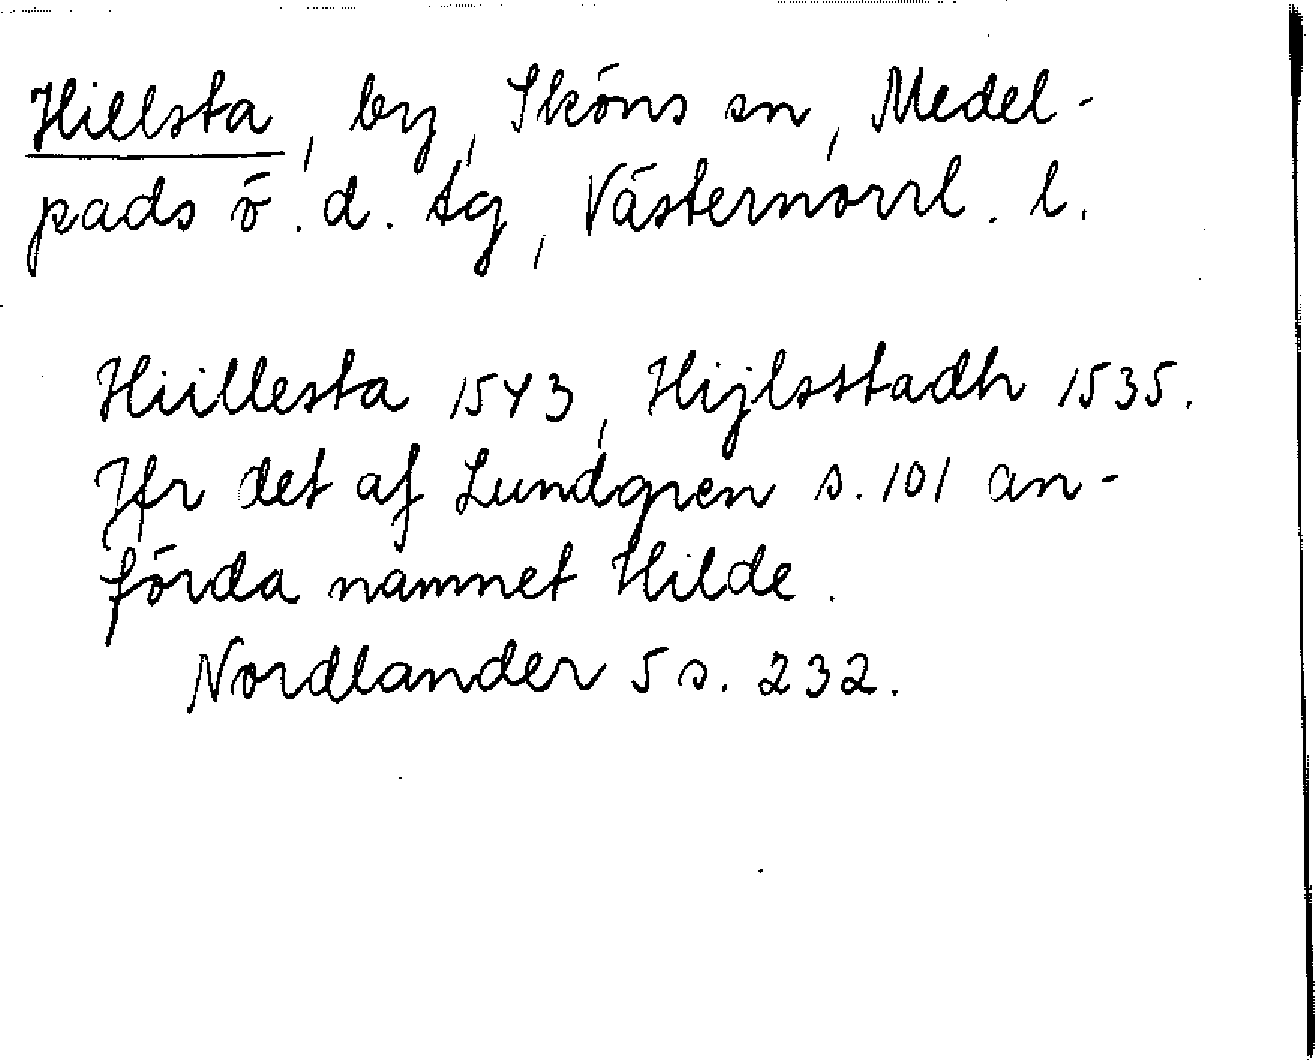 Hillsta, by, Sköns sn, Medel-
pads ö. d. tg, Västernorrl. l.
Hiillesta 1543, Hijlsstadh 1535.
Jfr det af Lundgren s. 101 an-
förda namnet Hilde.
Nordlander 5 s. 232.